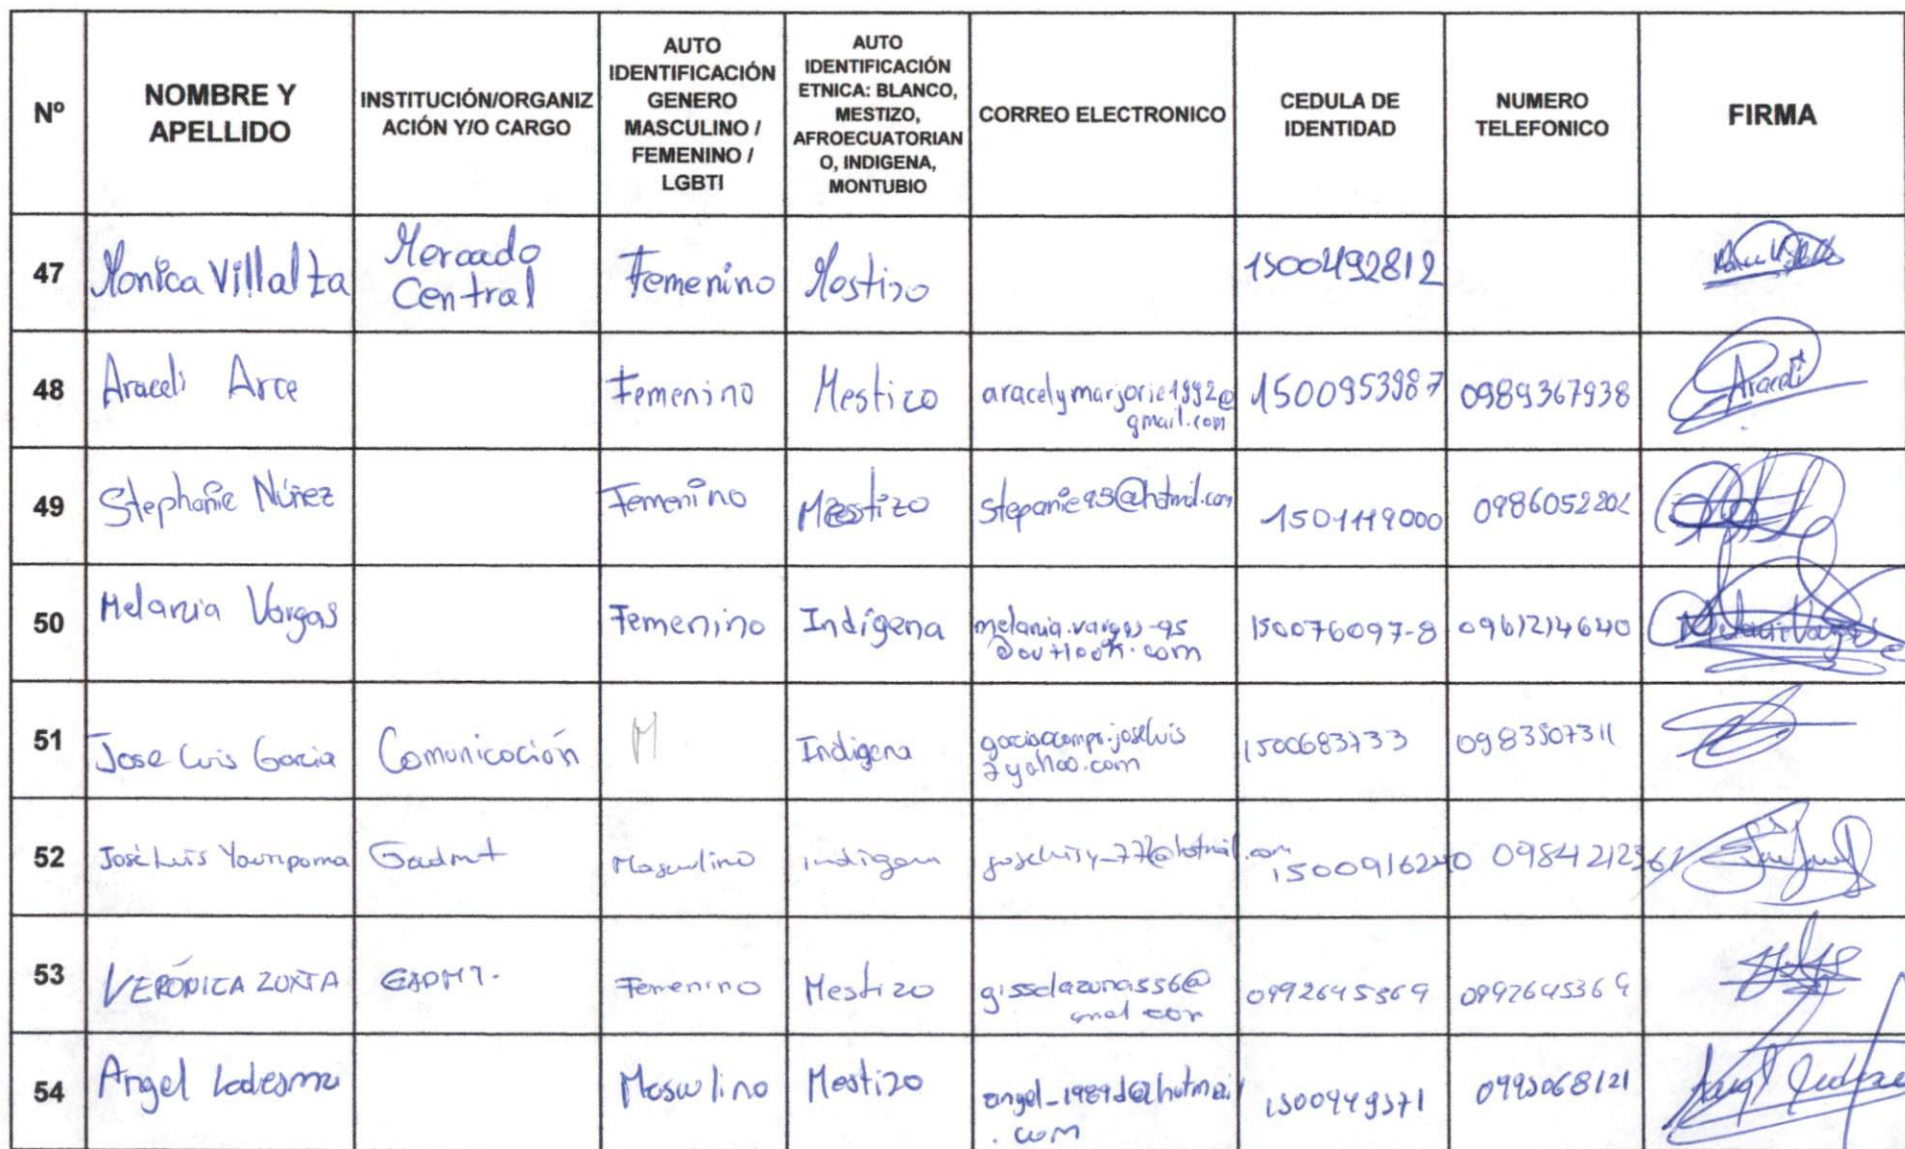 Nº NOMBRE Y APELLIDO INSTITUCIÓN/ORGANIZACIÓN Y/O CARGO AUTO IDENTIFICACIÓN GENERO MASCULINO / FEMENINO / LGBTI AUTO IDENTIFICACIÓN ETNICA: BLANCO, MESTIZO, AFROECUATORIANO, INDIGENA, MONTUBIO CORREO ELECTRONICO CEDULA DE IDENTIDAD NUMERO TELEFONICO FIRMA
47 Monica Villalta Mercado Central Femenino Mestizo 1500492812
48 Araceli Arce Femenino Mestizo aracelymarjorie1992@gmail.com 1500953987 0989367938 Araceli
49 Stephanie Núñez Femenino Mestizo 1501119000
50 Melania Vargas Femenino Indígena melania.vargas-95@outlook.com 150076097-8 0961214640
51 Jose Luis Garcia Comunicación M Indigena 1500683733 0983507311
52 José Luis Gadmt Masculino indigena 1500916240 0984212361
53 VERÓNICA GADMT. Femenino Mestizo 0992645369 0992645369
54 Angel Ledesma Masculino Mestizo 1500949571